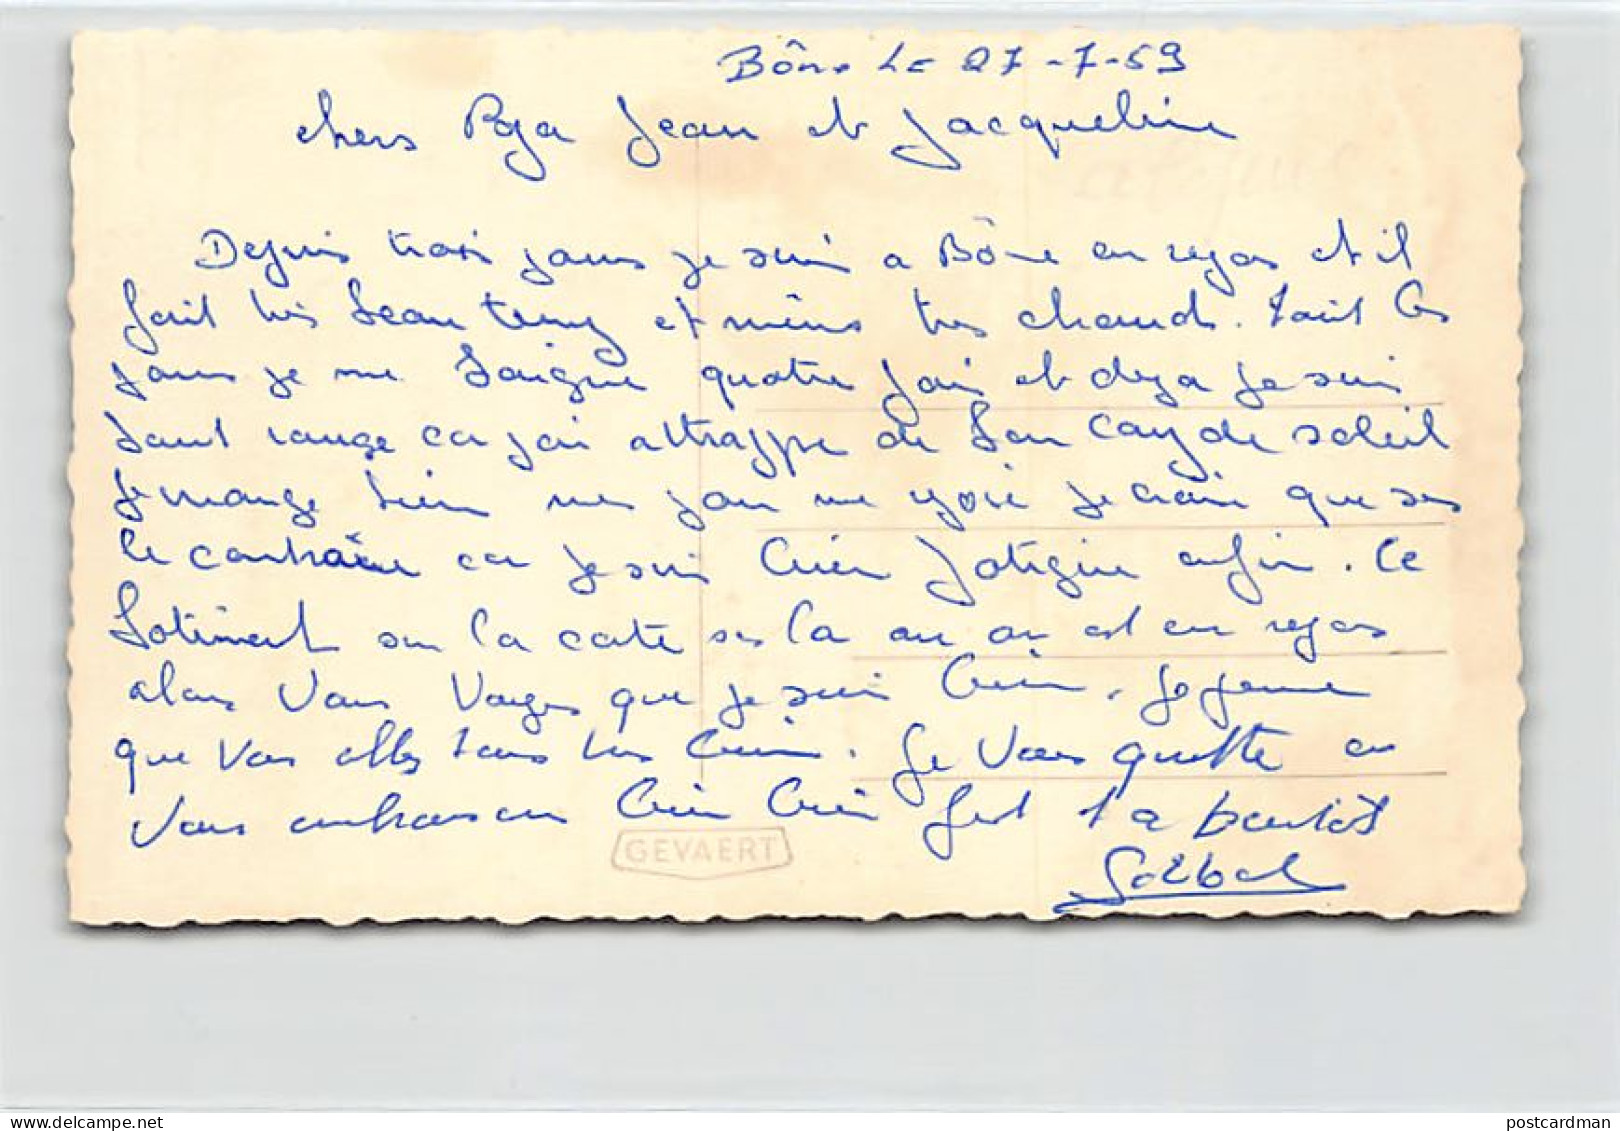 Bône Le 27-7-59
chers Papa Jean et Jacqueline
Depuis trois jours je suis a Bône en repos et il
fait tres beau temps et même tres chaud. tout les
jours je me baigne quatre fois et deja je suis
tout rouge car j'ai attrappe de bon coup de soleil
Je mange bien mes pour me je crois que ses
le contraire car je suis bien fatigue enfin. Ce
batiment sur la carte ses la ou on est en repos
alors Vous Voyez que je suis bien. Je pense
que Vous alles tous tres bien. Je Vous quitte en
Vous embrassan bien bien fort a bientôt
GEVAERT
postcardman